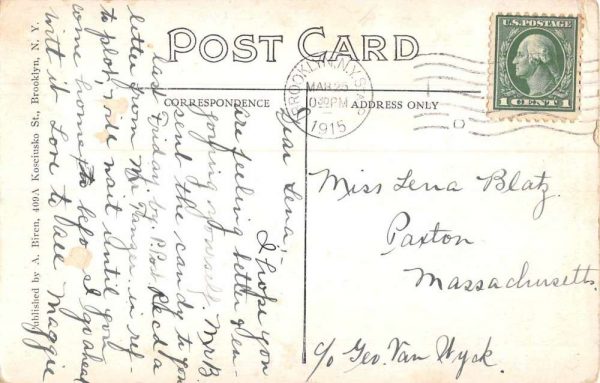 POST CARD
CORRESPONDENCE
ADDRESS ONLY
U.S. POSTAGE
1 CENT 1
BROOKLYN, N.Y.
MAR 25
PM
1915
Published by A. Biren, 409A Kosciusko St., Brooklyn, N. Y.
Dear Lena,
I hope you
are feeling better & en-
joying yourself. Mr B.
sent the candy to you
last Friday by P. Post. Rec'd a
letter from Mr in ref-
to plot, & will wait until you
come home before I go ahead
with it Love to all Maggie
Miss Lena Blatz
Paxton
Massachusetts.
c/o Geo. Van Wyck.